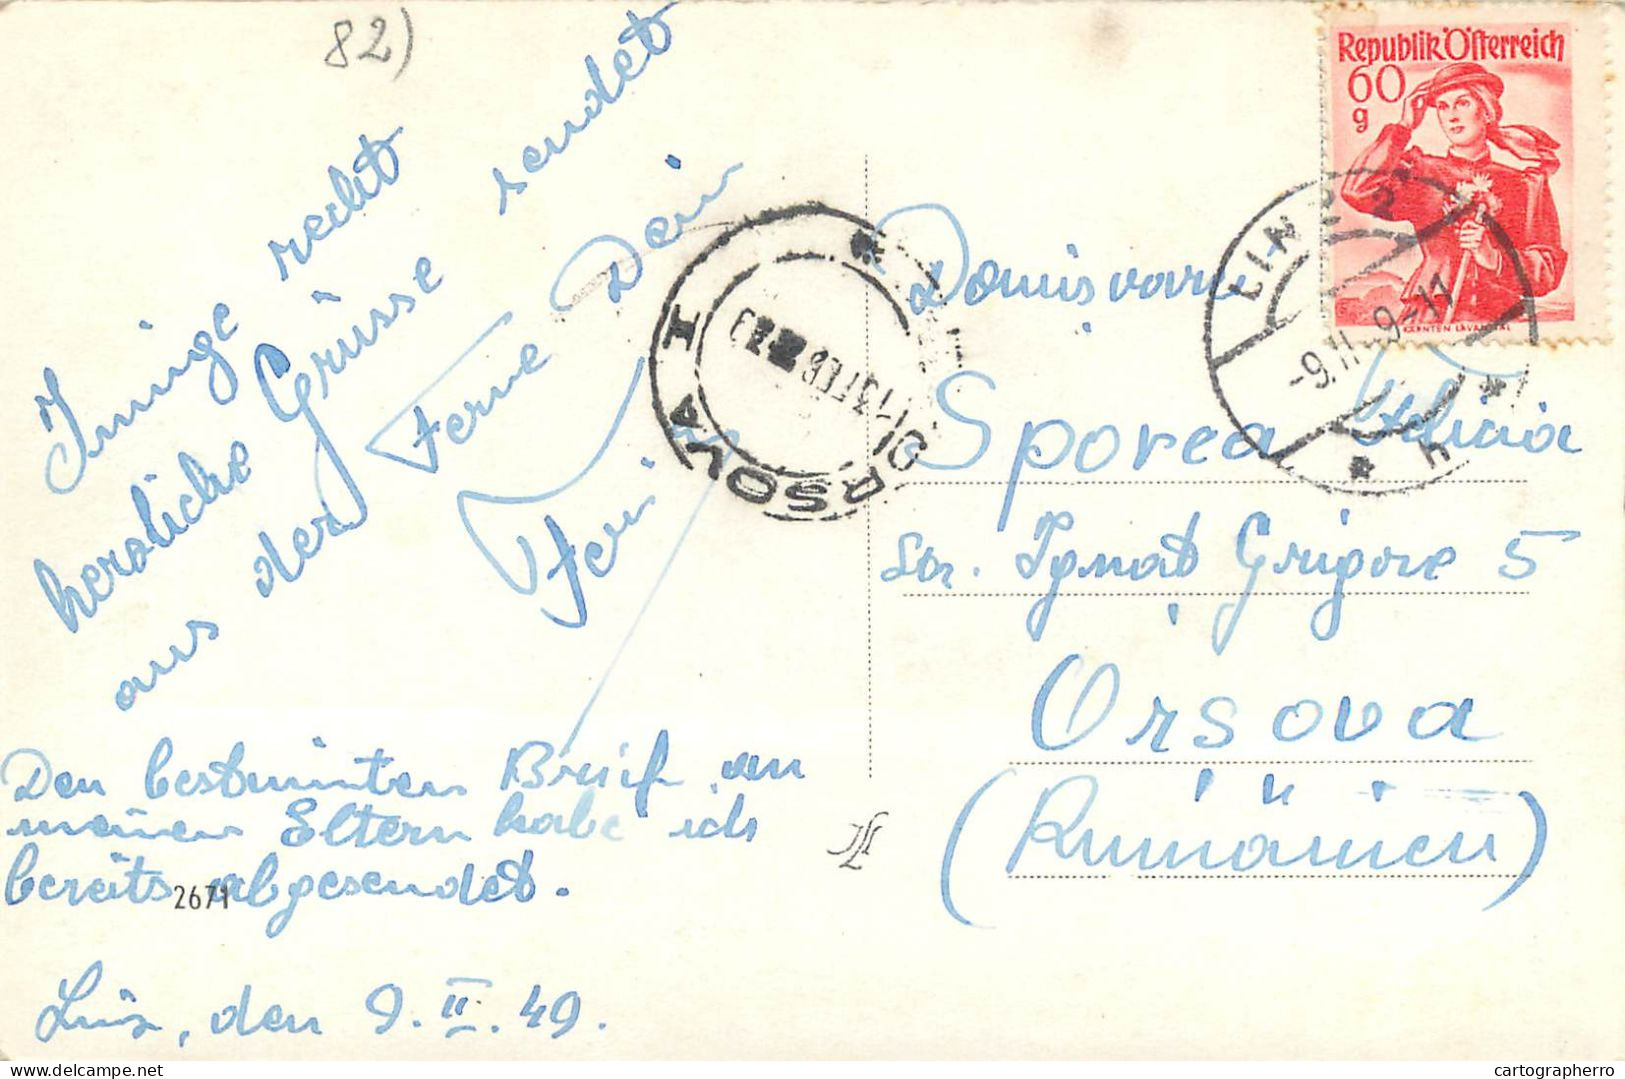 82)
Innige recht
herzliche Grüsse sendet
aus der Ferne Dein
Feri
Den bestimmten Brief an
meinen Eltern habe ich
bereits abgesendet.
2671
Linz, den 9. II. 49.
Republik Österreich
60
g
KÄRNTEN LAVANTTAL
LINZ 2
-9.II. 9-11
ORSOVA I
Domisoara
Sporea Felicia
Str. Ignat Grigore 5
Orsova
(Rumänien)
cartographerro